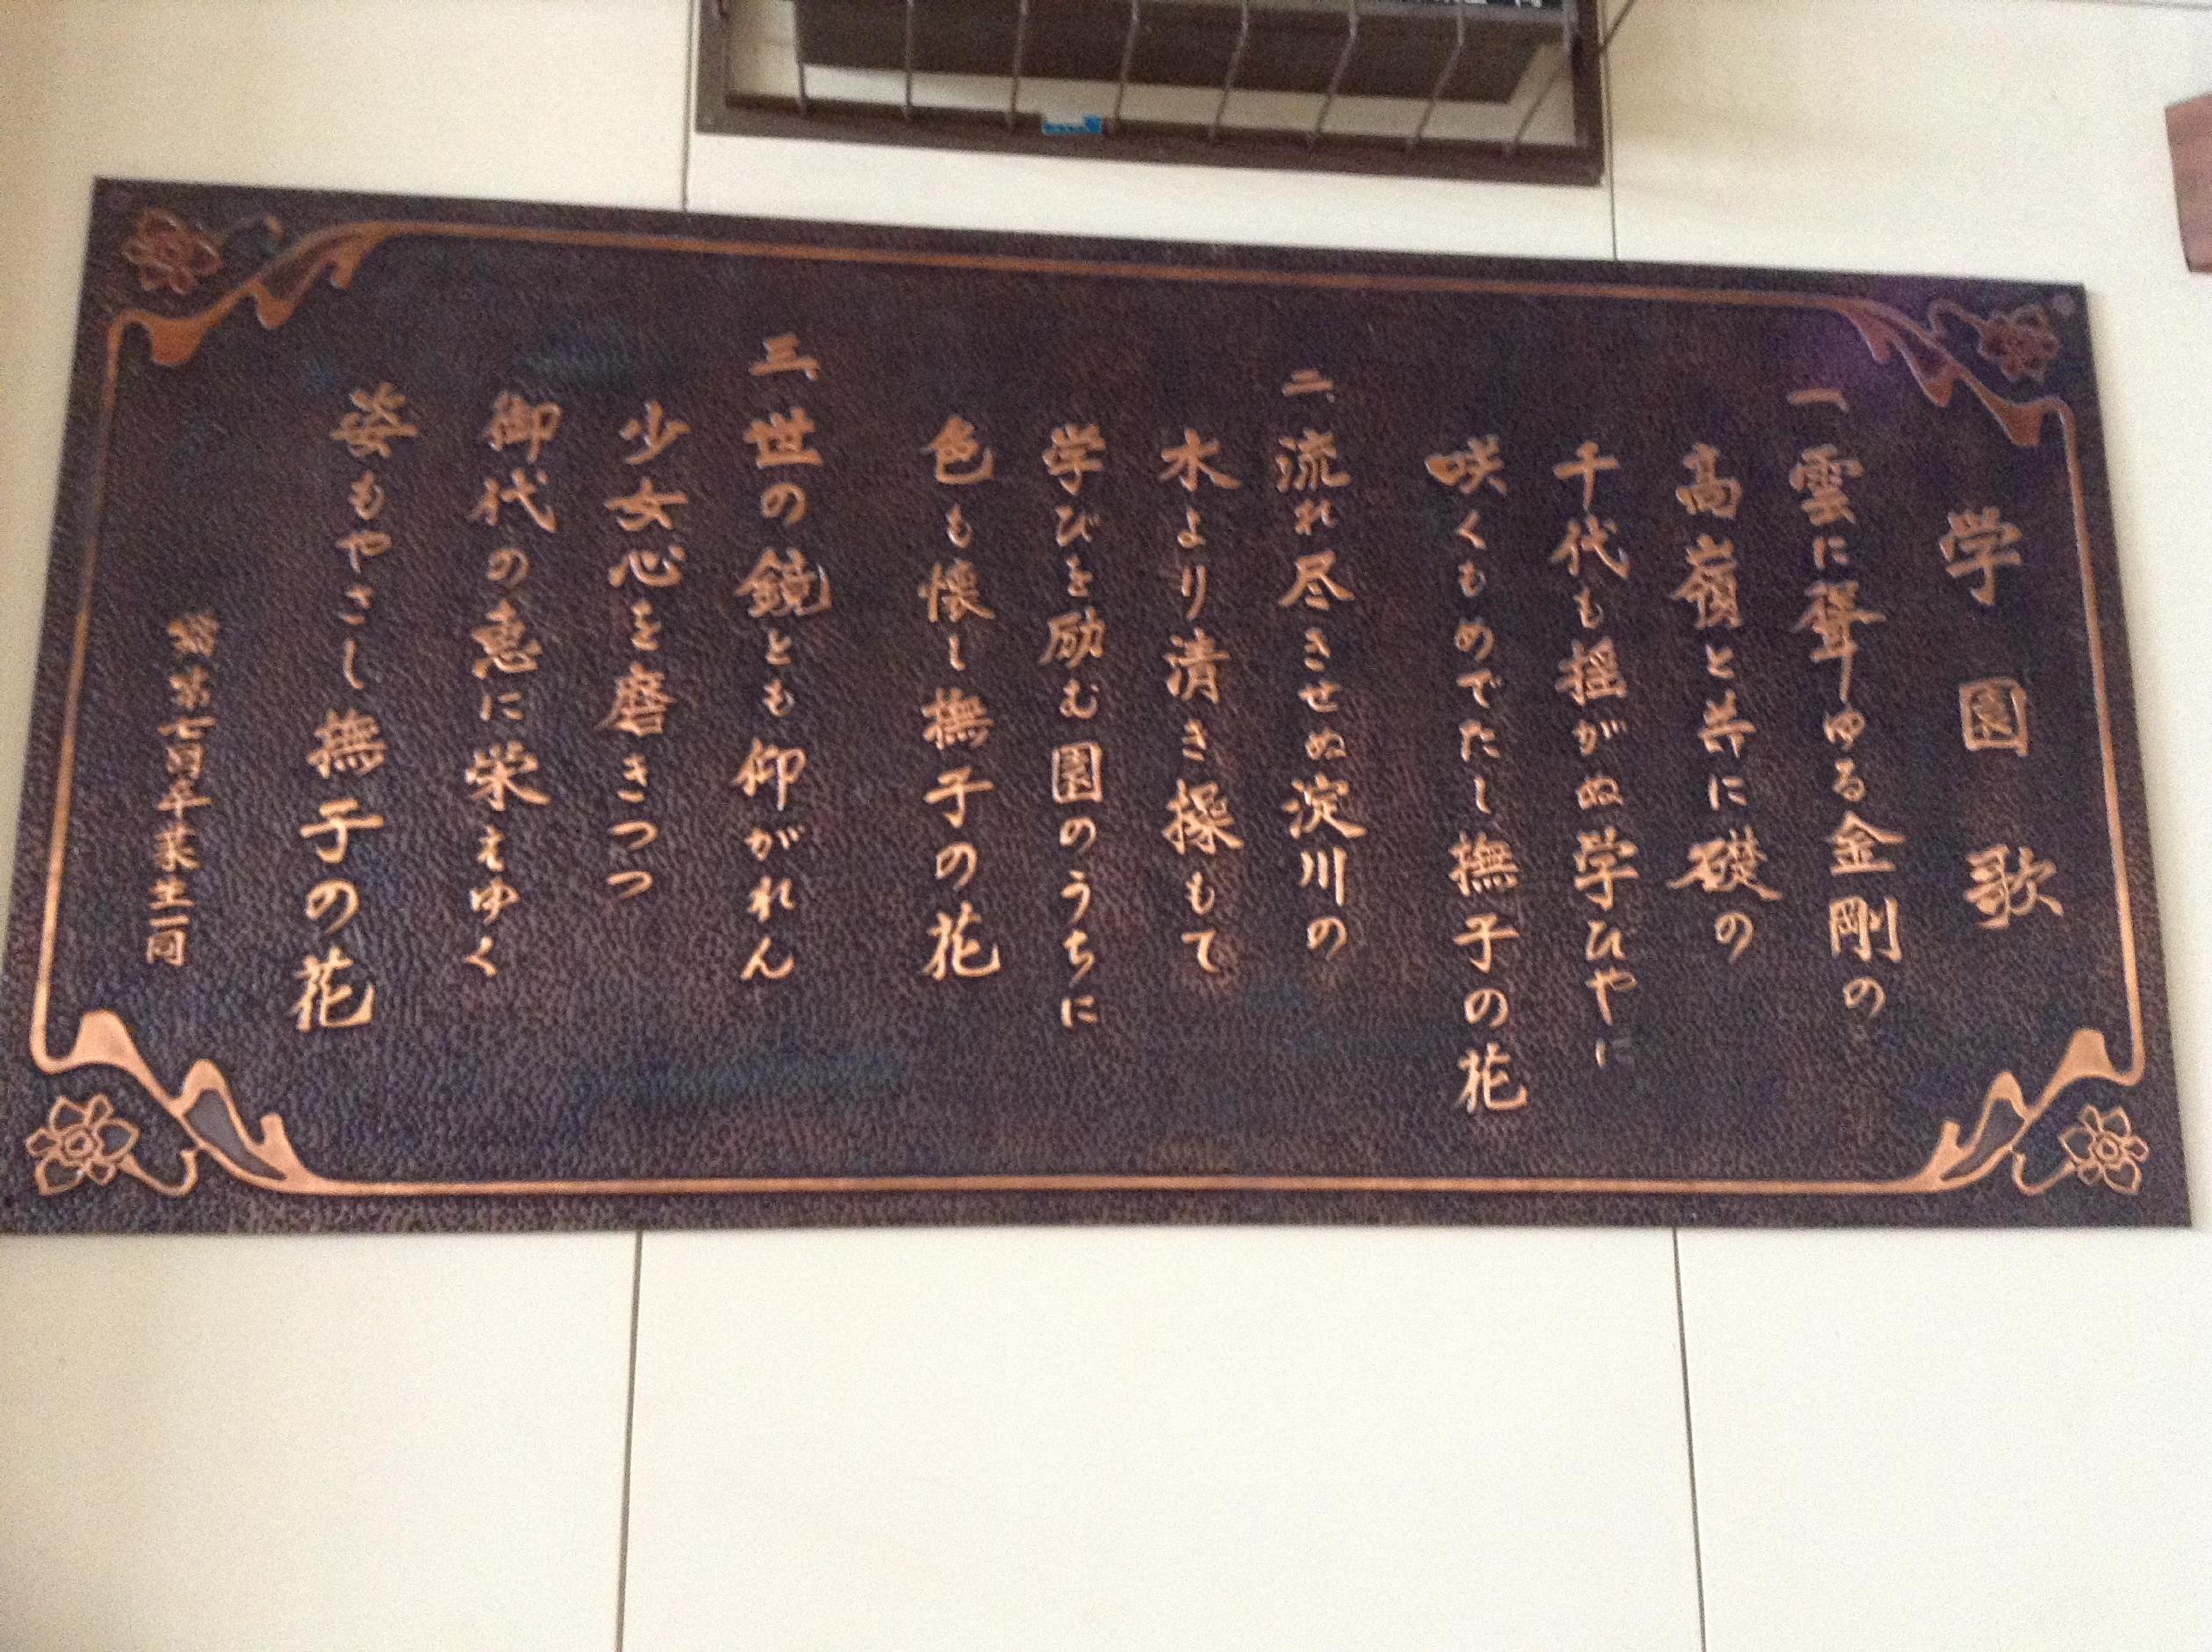 学園歌
一、雲に聳ゆる金剛の
高嶺と共に礎の
千代も揺がぬ学びやに
咲くもめでたし撫子の花
二、流れ尽きせぬ淀川の
水より清き操もて
学びを励む園のうちに
色も懐し撫子の花
三、世の鏡とも仰がれん
少女心を磨きつつ
御代の恵に栄えゆく
姿もやさし撫子の花
卒業生一同